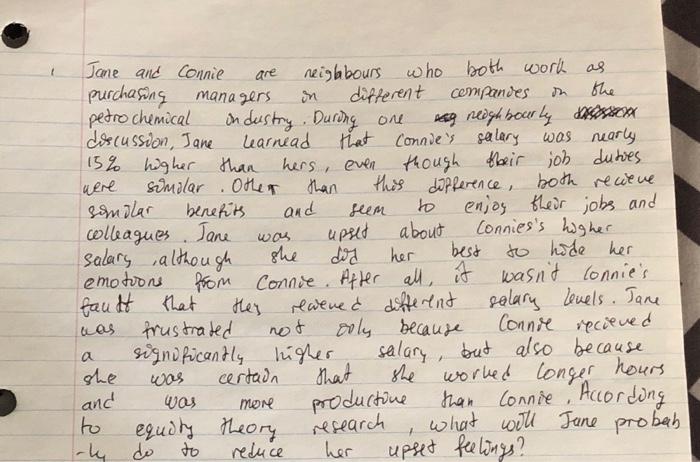 1 Jane and Connie are neighbours who both work as
purchasing managers in different companies in the
petrochemical industry. During one neighbourly
discussion, Jane learnead that Connie's salary was nearly
15% higher than hers, even though their job duties
were similar. Other than this difference, both recieve
similar benefits and seem to enjoy their jobs and
colleagues. Jane was upset about Connies's higher
salary, although she did her best to hide her
emotions from Connie. After all, it wasn't Connie's
fault that they recieved different salary levels. Jane
was frustrated not only because Connie recieved
a significantly higher salary, but also because
she was certain that she worked longer hours
and was more productive than Connie. According
to equity theory research, what will Jane probab
-ly do to reduce her upset feelings?